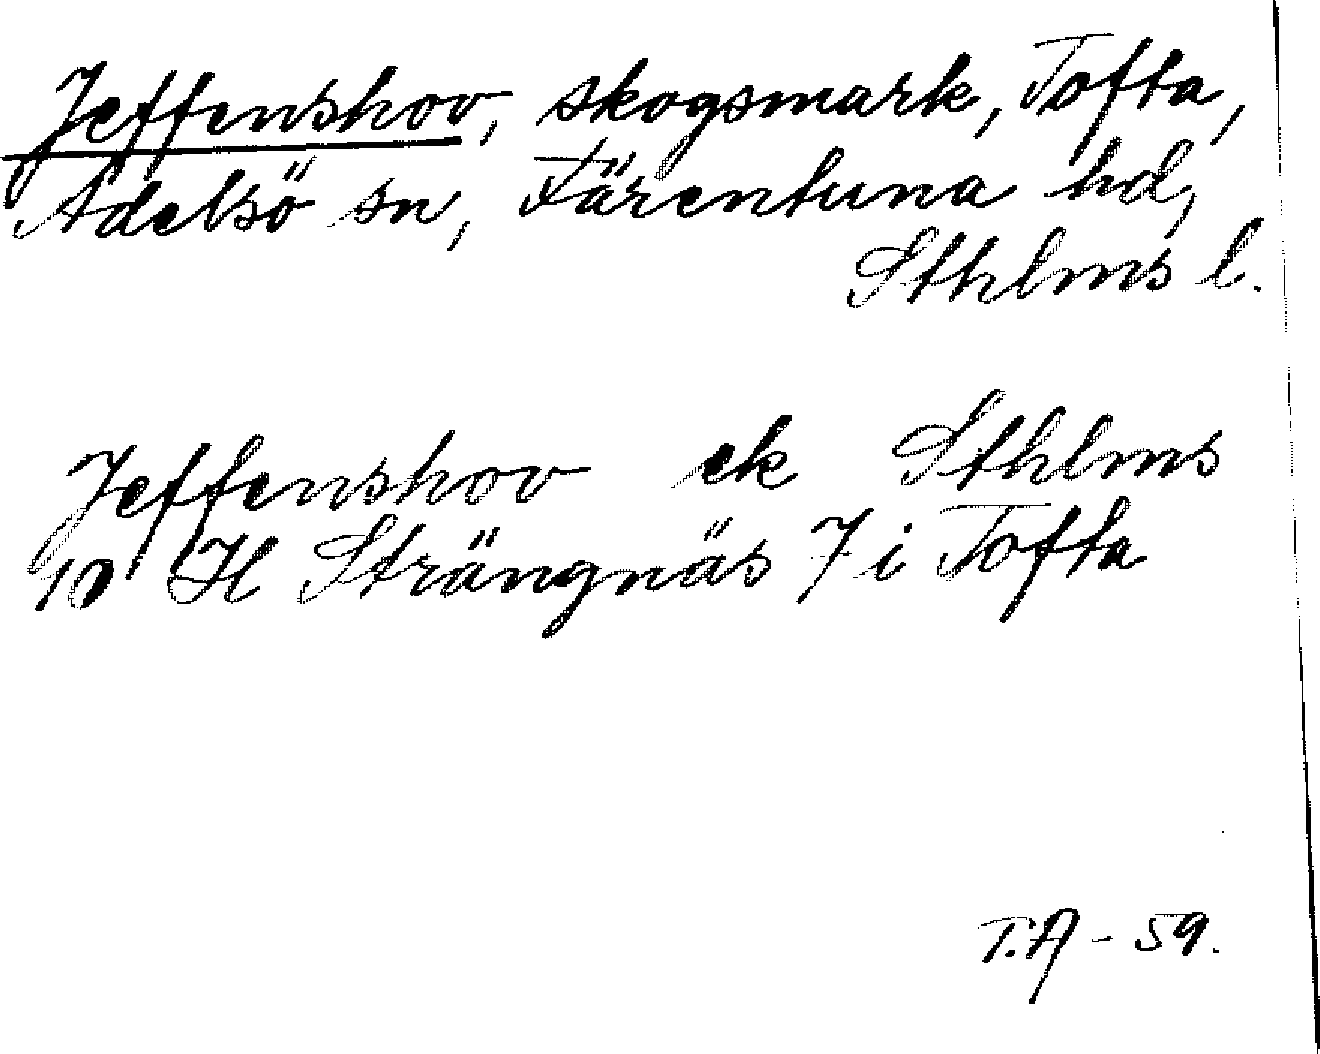 Jeffenshov, skogsmark, Tofta,
Adelsö sn, Färentuna hd,
Sthlms l.
Jeffenshov ek Sthlms
10 H Strängnäs 7 i Tofta
T.A - 59.